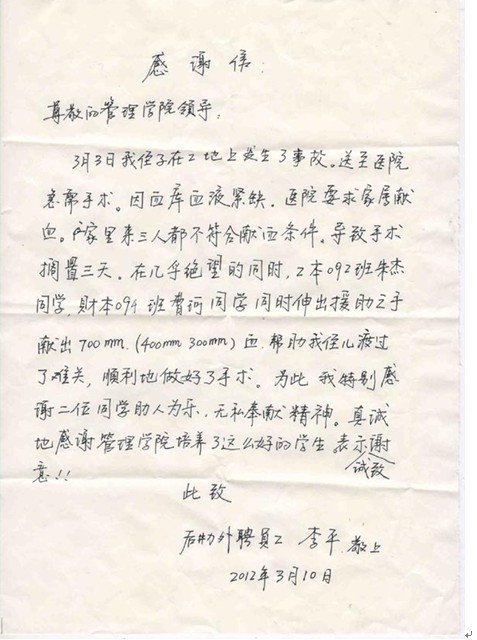 感谢信:
尊敬的管理学院领导,
3月3日我侄子在工地上发生了事故。送至医院
急需手术。因血库血液紧缺,医院要求家属献
血。家里来三人都不符合献血条件。导致手术
搁置三天。在几乎绝望的同时,工本092班朱杰
同学,财本094班费珂同学同时伸出援助之手
献出700mm.(400mm 300mm)血.帮助我侄儿渡过
了难关,顺利地做好了手术。为此我特别感
谢二位同学助人为乐,无私奉献精神。真诚
地感谢管理学院培养了这么好的学生 表示诚致谢
意!!
此致
后勤外聘员工 李平 敬上
2012年3月10日